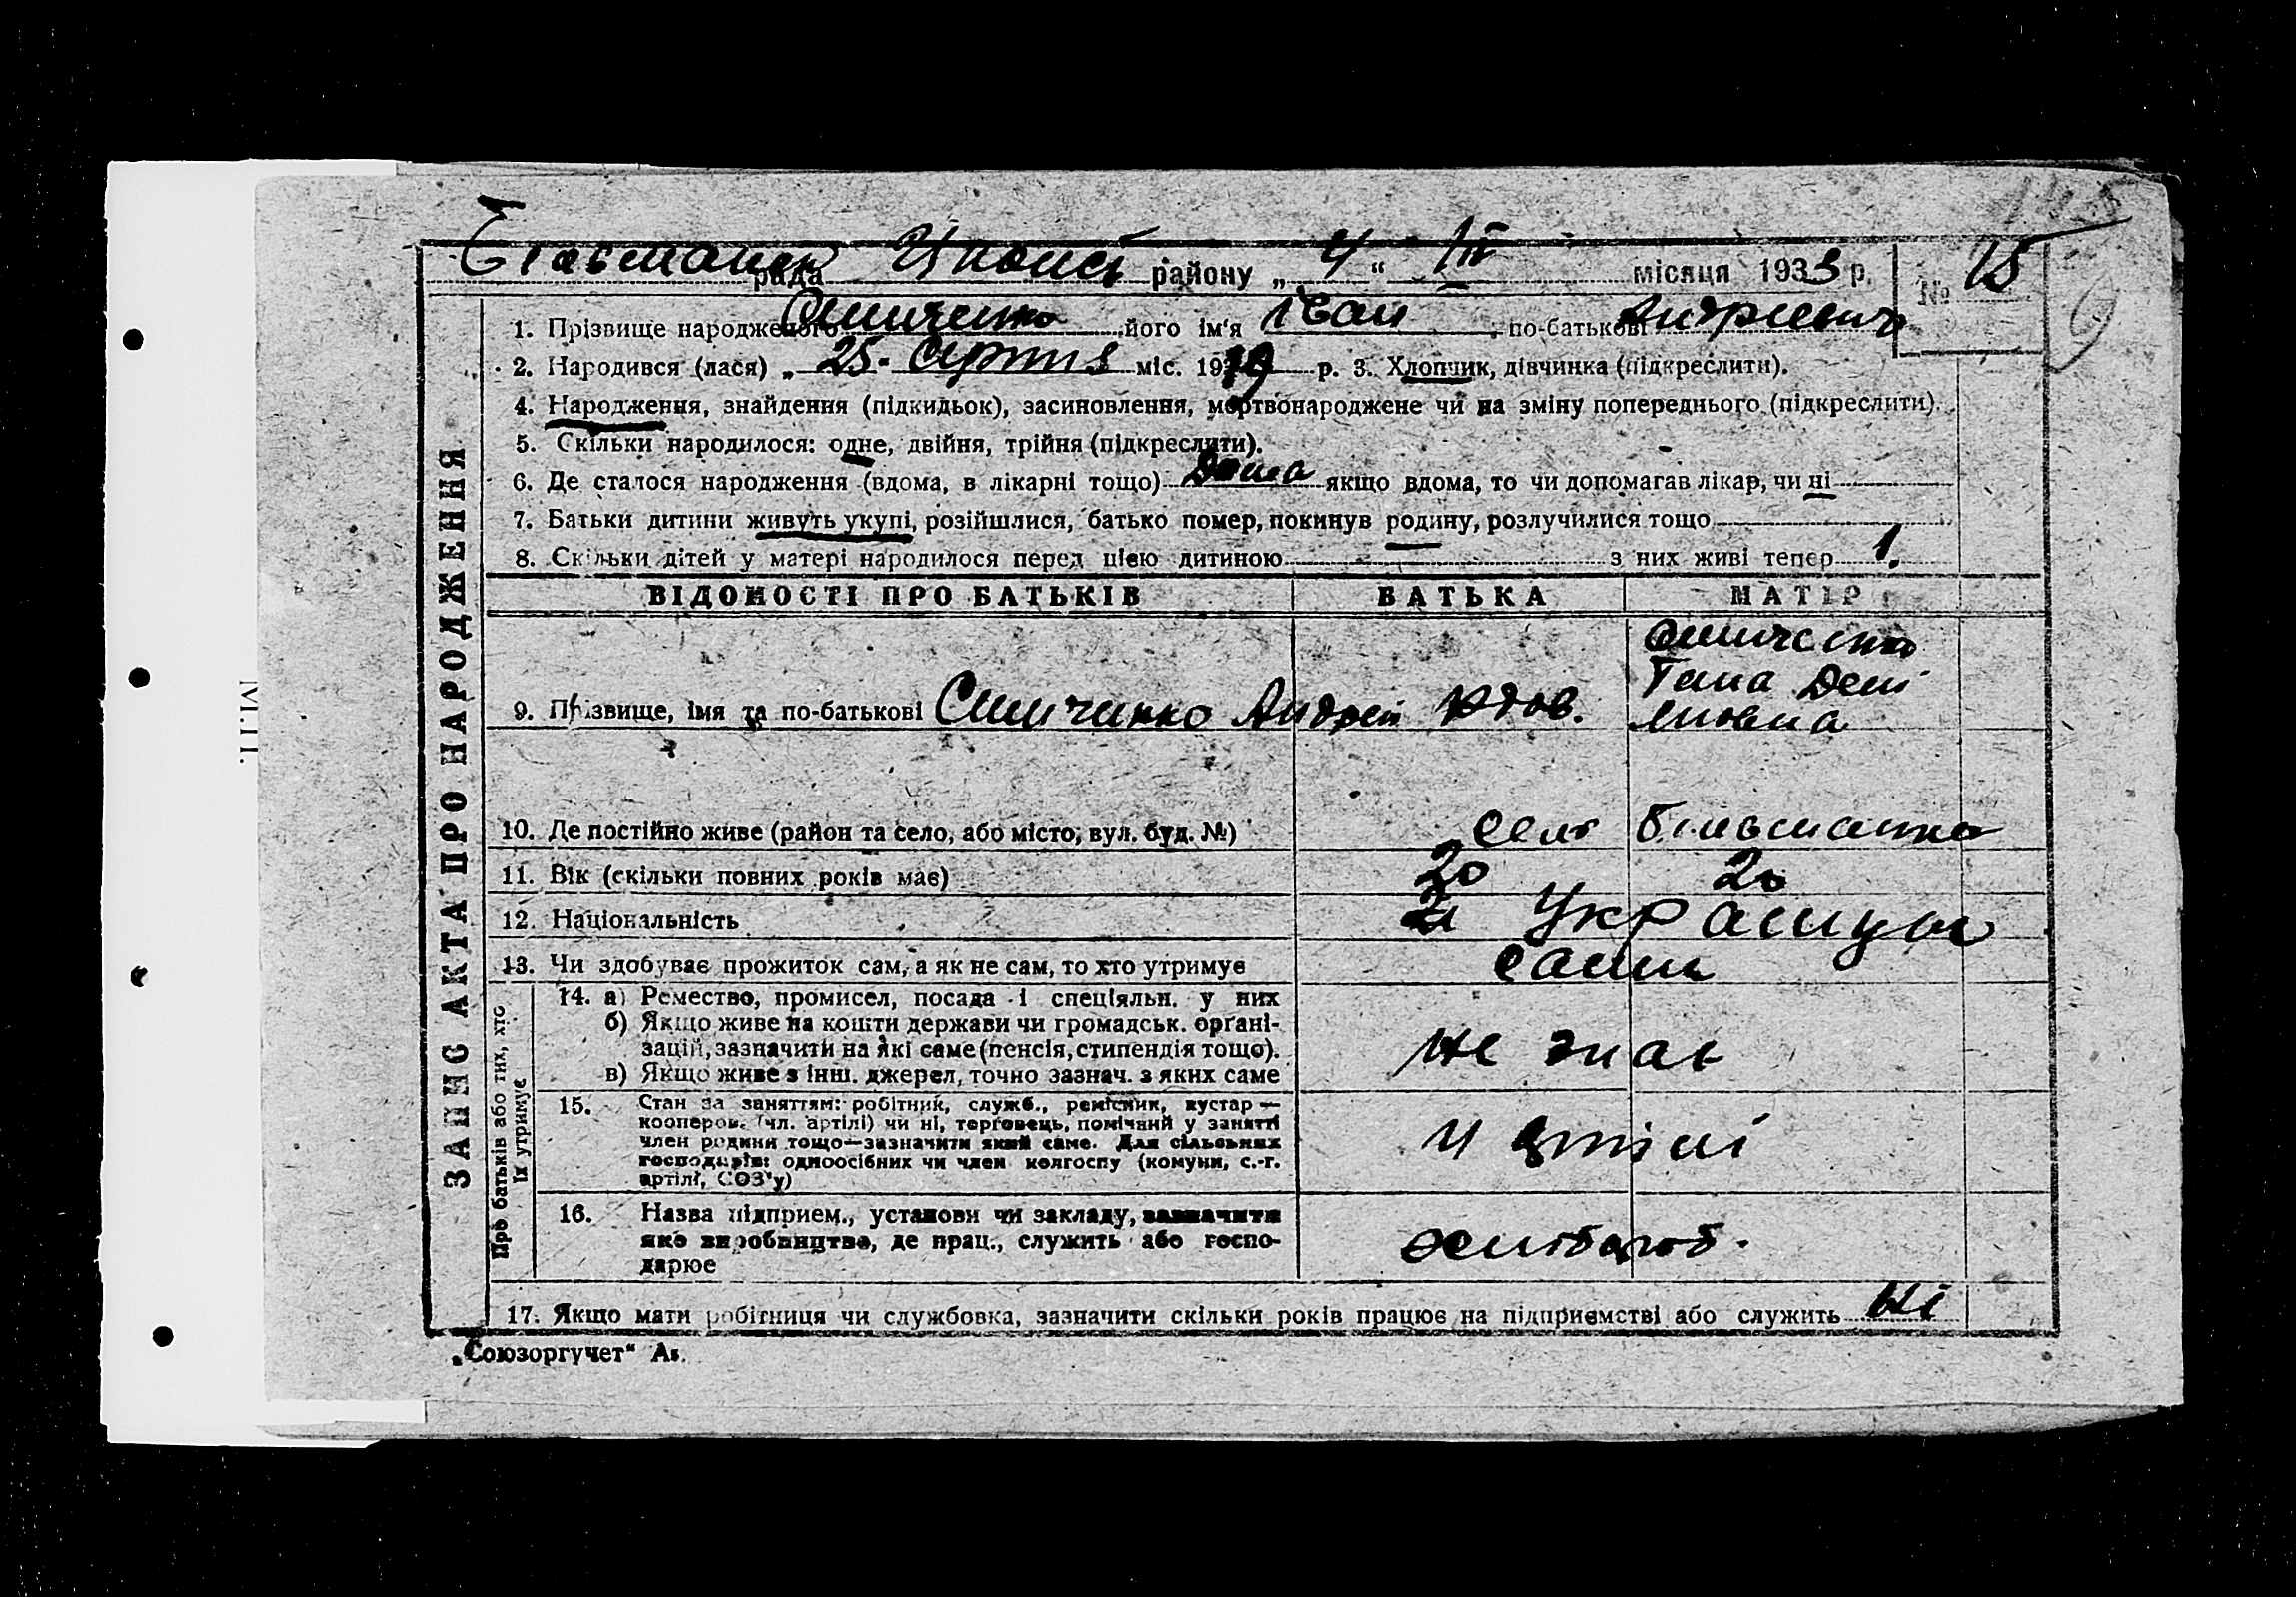 рада району „ 4 “ ІІІ місяця 1933 р. № 15
1. Прізвище народженого його ім'я Іван по-батькові Андрієвич
2. Народився (лася) „ 25. серпня міс. 19 р. 3. Хлопчик, дівчинка (підкреслити).
4. Народження, знайдення (підкидьок), засиновлення, мертвонароджене чи на зміну попереднього (підкреслити).
5. Скільки народилося: одне, двійня, трійня (підкреслити).
6. Де сталося народження (вдома, в лікарні тощо) Дома якщо вдома, то чи допомагав лікар, чи ні
7. Батьки дитини живуть укупі, розійшлися, батько помер, покинув родину, розлучилися тощо
8. Скільки дітей у матері народилося перед цією дитиною з них живі тепер 1.
ВІДОМОСТІ ПРО БАТЬКІВ БАТЬКА МАТІР
9. Прізвище, імя та по-батькові Андрей
10. Де постійно живе (район та село, або місто, вул. буд. №) село
11. Вік (скільки повних років має) 20 20
12. Національність
13. Чи здобуває прожиток сам, а як не сам, то хто утримує сами
14. а) Ремество, промисел, посада і спеціяльн. у них
б) Якщо живе на кошти держави чи громадськ. органі-
зацій, зазначити на які саме (пенсія, стипендія тощо).
в) Якщо живе з інш. джерел, точно зазнач. з яких саме
не
15. Стан за заняттям: робітник, служб., ремісник, кустар —
коопером. (чл. артілі) чи ні, торговець, помічний у занятті
член родини тощо—зазначити який саме. Для сільських
господарів: одноосібних чи член колгоспу (комуни, с.-г.
артілі, СОЗ'у)
16. Назва підприєм., установи чи закладу, зазначити
яке виробництво, де прац., служить або госпо-
дарює
17. Якщо мати робітниця чи службовка, зазначити скільки років працює на підприємстві або служить Ні
„Союзоргучет“
ЗАПИС АКТА ПРО НАРОДЖЕННЯ
Про батьків або тих, хто
їх утримує